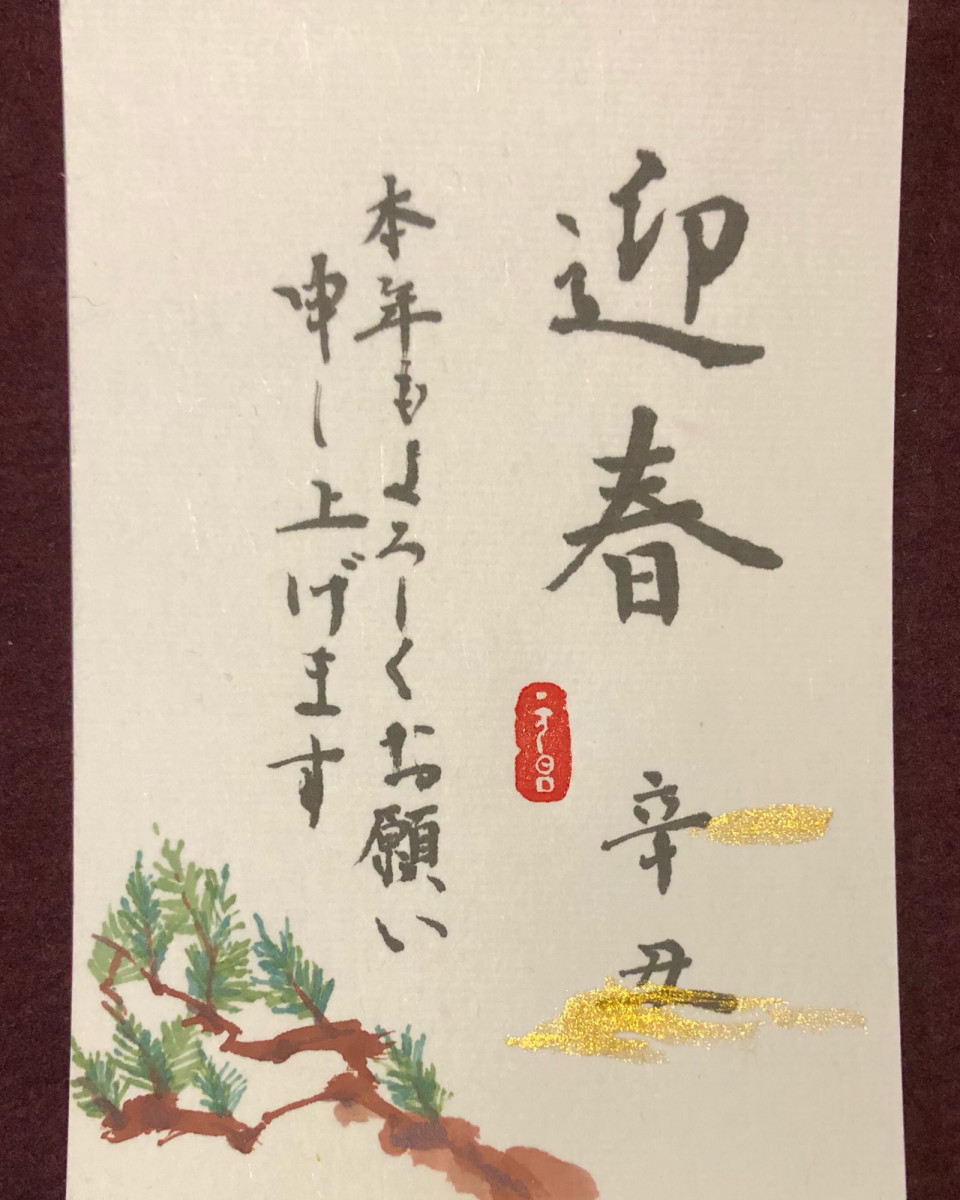 迎春
辛丑
本年もよろしくお願い
申し上げます